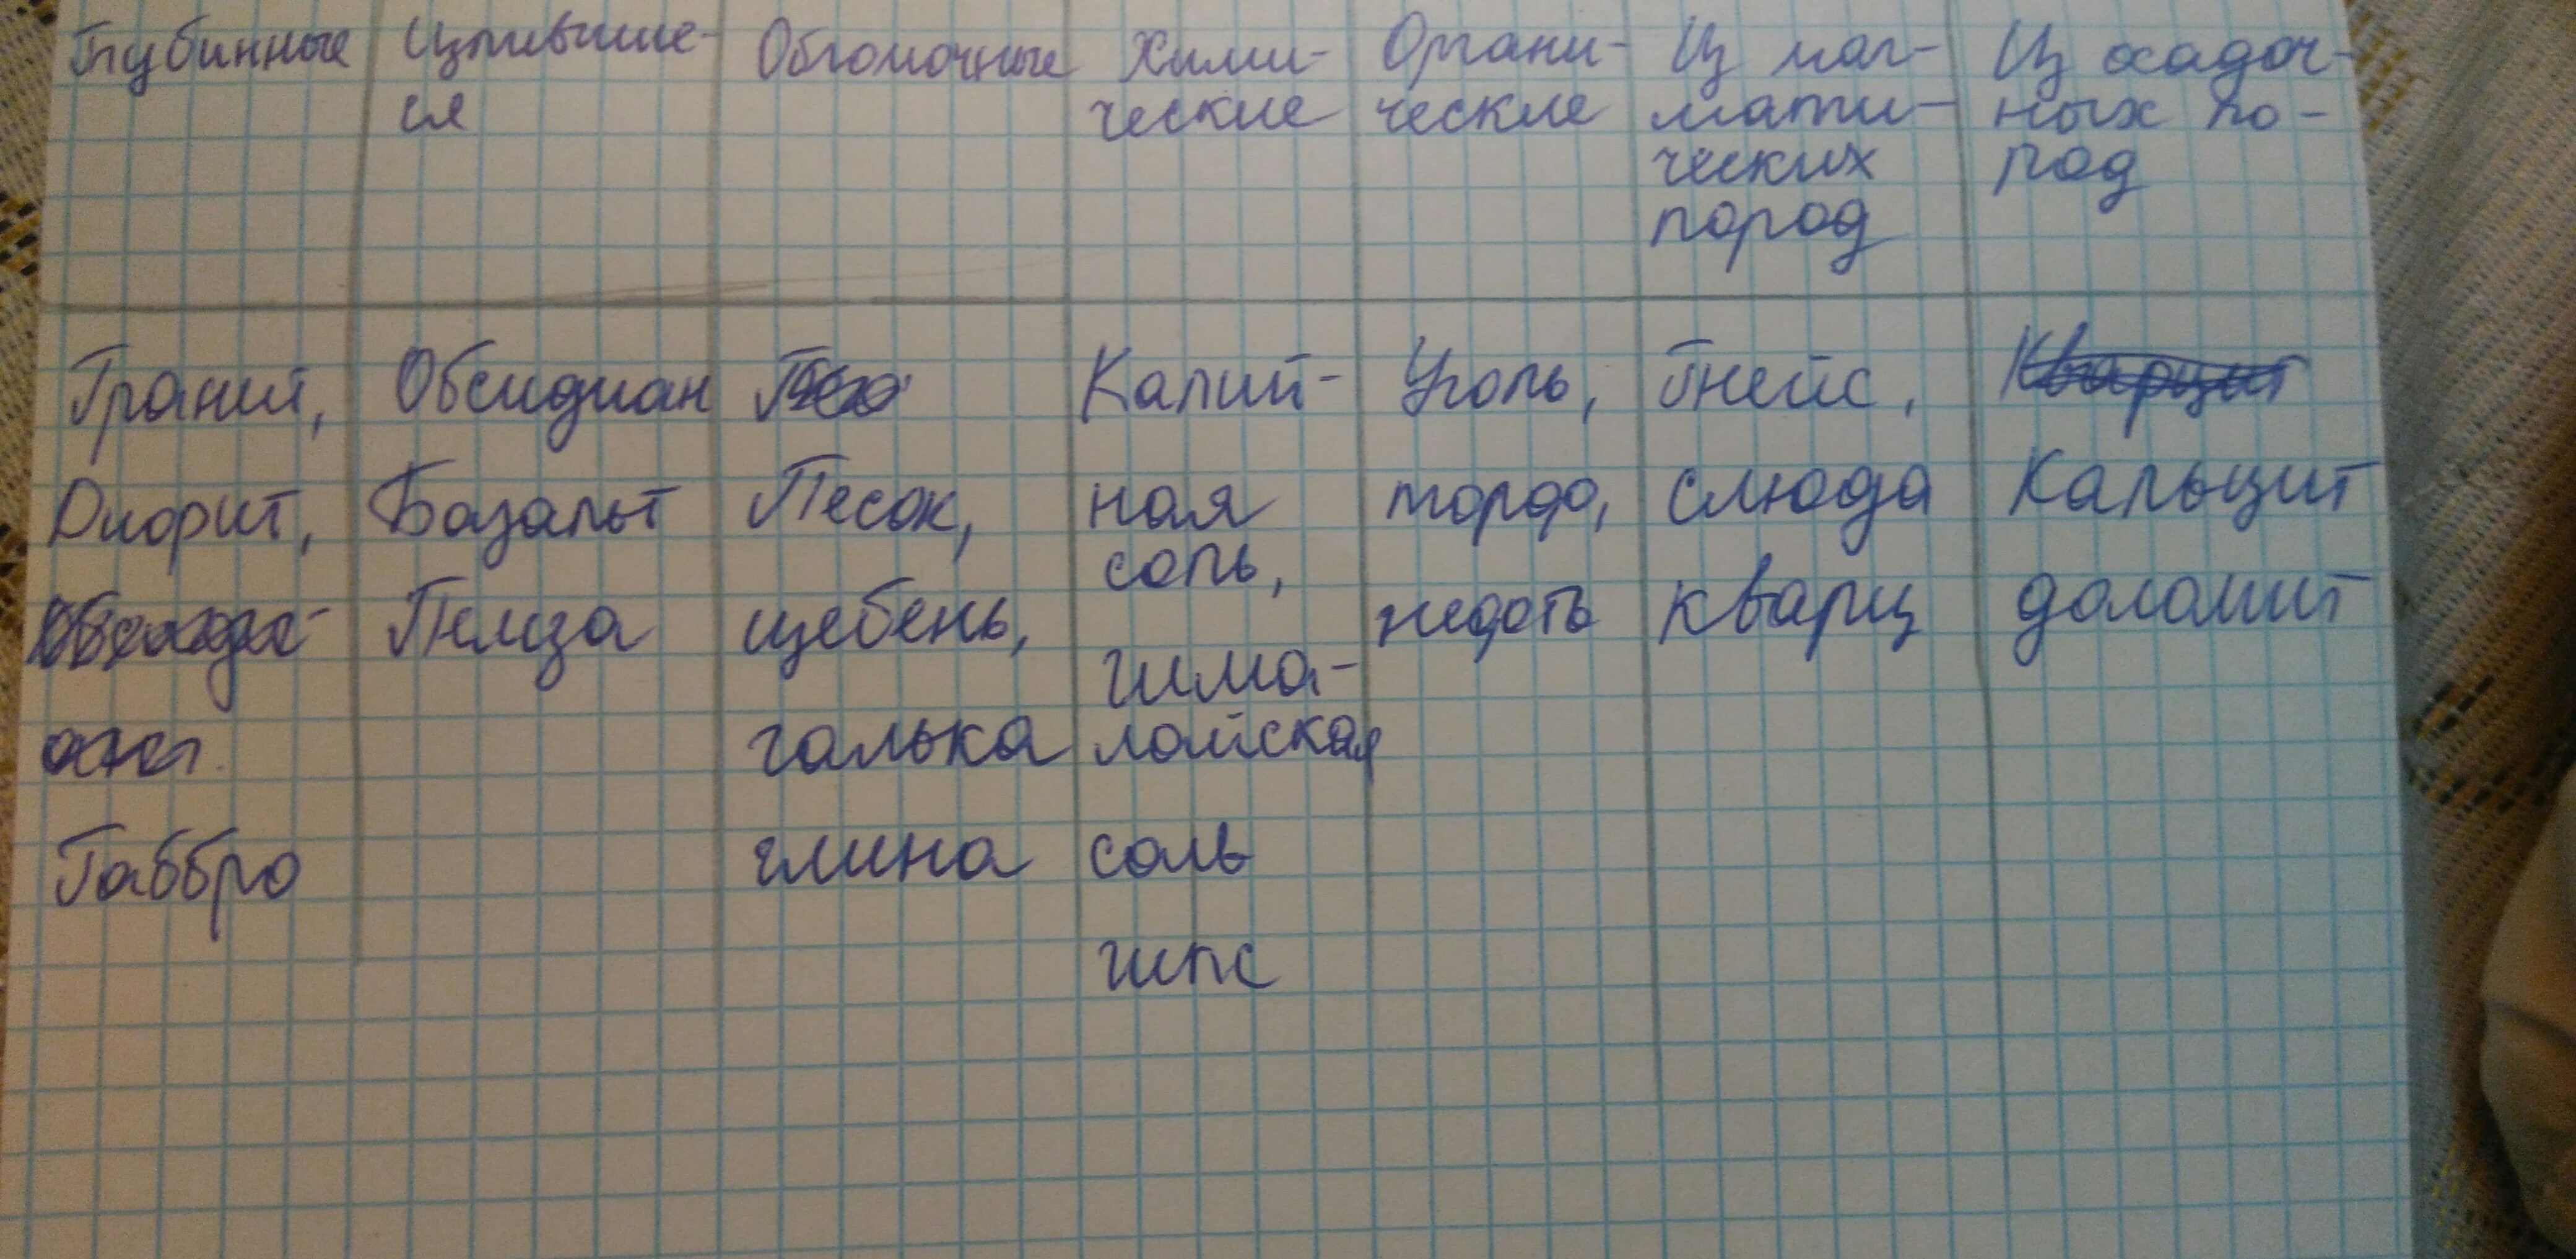 Глубинные
Излившие-
ся
Обломочные
Хими-
ческие
Органи-
ческие
Из маг-
мати-
ческих
пород
Из осадоч-
ных по-
род
Гранит,
Диорит,
Габбро
Обсидиан
Базальт
Пемза
Песок,
щебень,
галька
глина
Калий-
ная
соль,
гима-
лайская
соль
гипс
Уголь,
торф,
нефть
Гнейс,
слюда
кварц
Кварцит
Кальцит
доломит